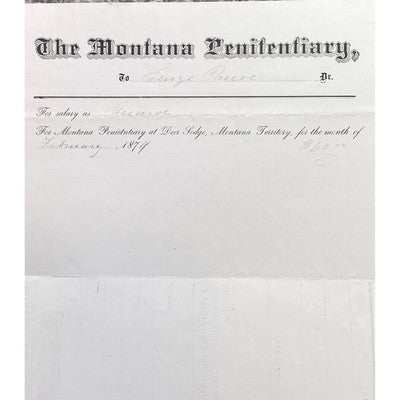 The Montana Penitentiary,
To George Pascoe Dr.
For salary as Guard
For Montana Penitentiary at Deer Lodge, Montana Territory, for the month of
February, 1879